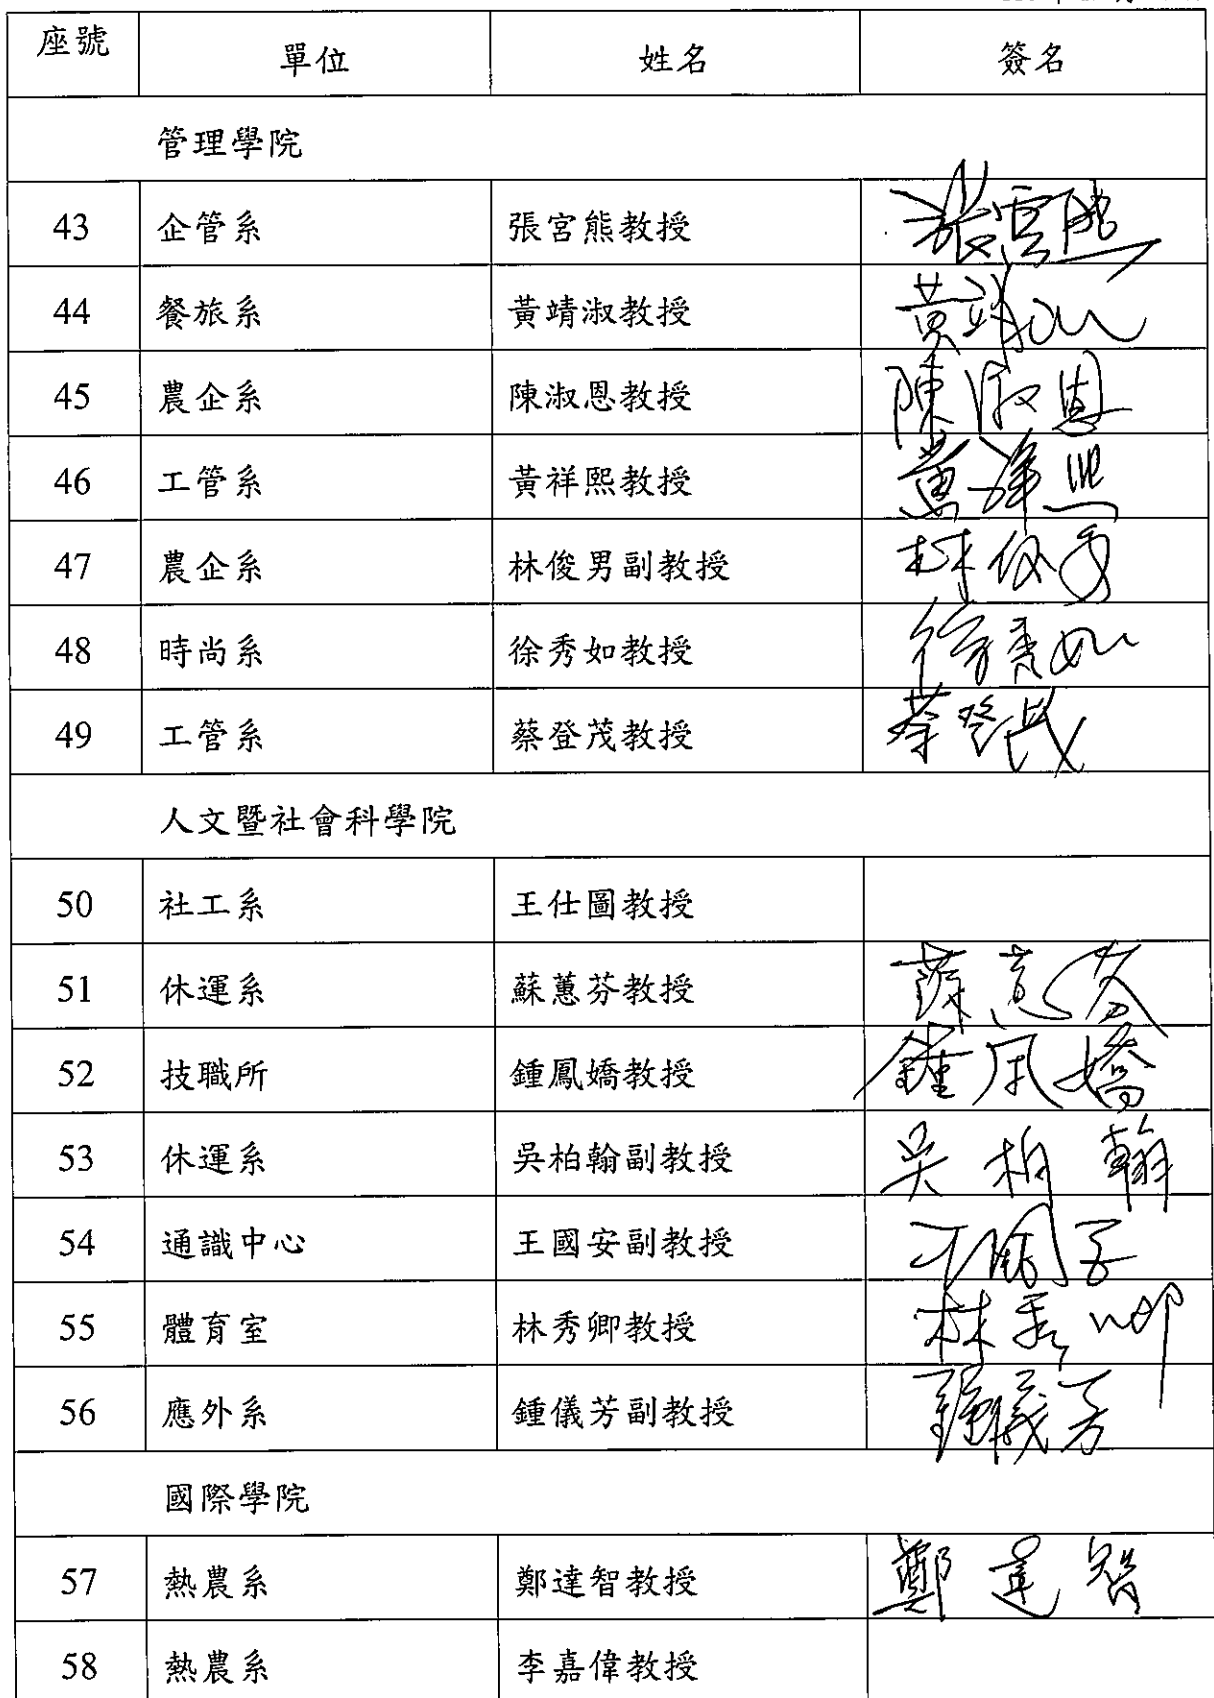 座號 單位 姓名 簽名
管理學院
43 企管系 張宮熊教授 張宮熊
44 餐旅系 黃靖淑教授 黃靖淑
45 農企系 陳淑恩教授 陳淑恩
46 工管系 黃祥熙教授 黃祥熙
47 農企系 林俊男副教授 林俊男
48 時尚系 徐秀如教授 徐秀如
49 工管系 蔡登茂教授 蔡登茂
人文暨社會科學院
50 社工系 王仕圖教授
51 休運系 蘇蕙芬教授 蘇蕙芬
52 技職所 鍾鳳嬌教授 鍾鳳嬌
53 休運系 吳柏翰副教授 吳柏翰
54 通識中心 王國安副教授 王國安
55 體育室 林秀卿教授 林秀卿
56 應外系 鍾儀芳副教授 鍾儀芳
國際學院
57 熱農系 鄭達智教授 鄭達智
58 熱農系 李嘉偉教授